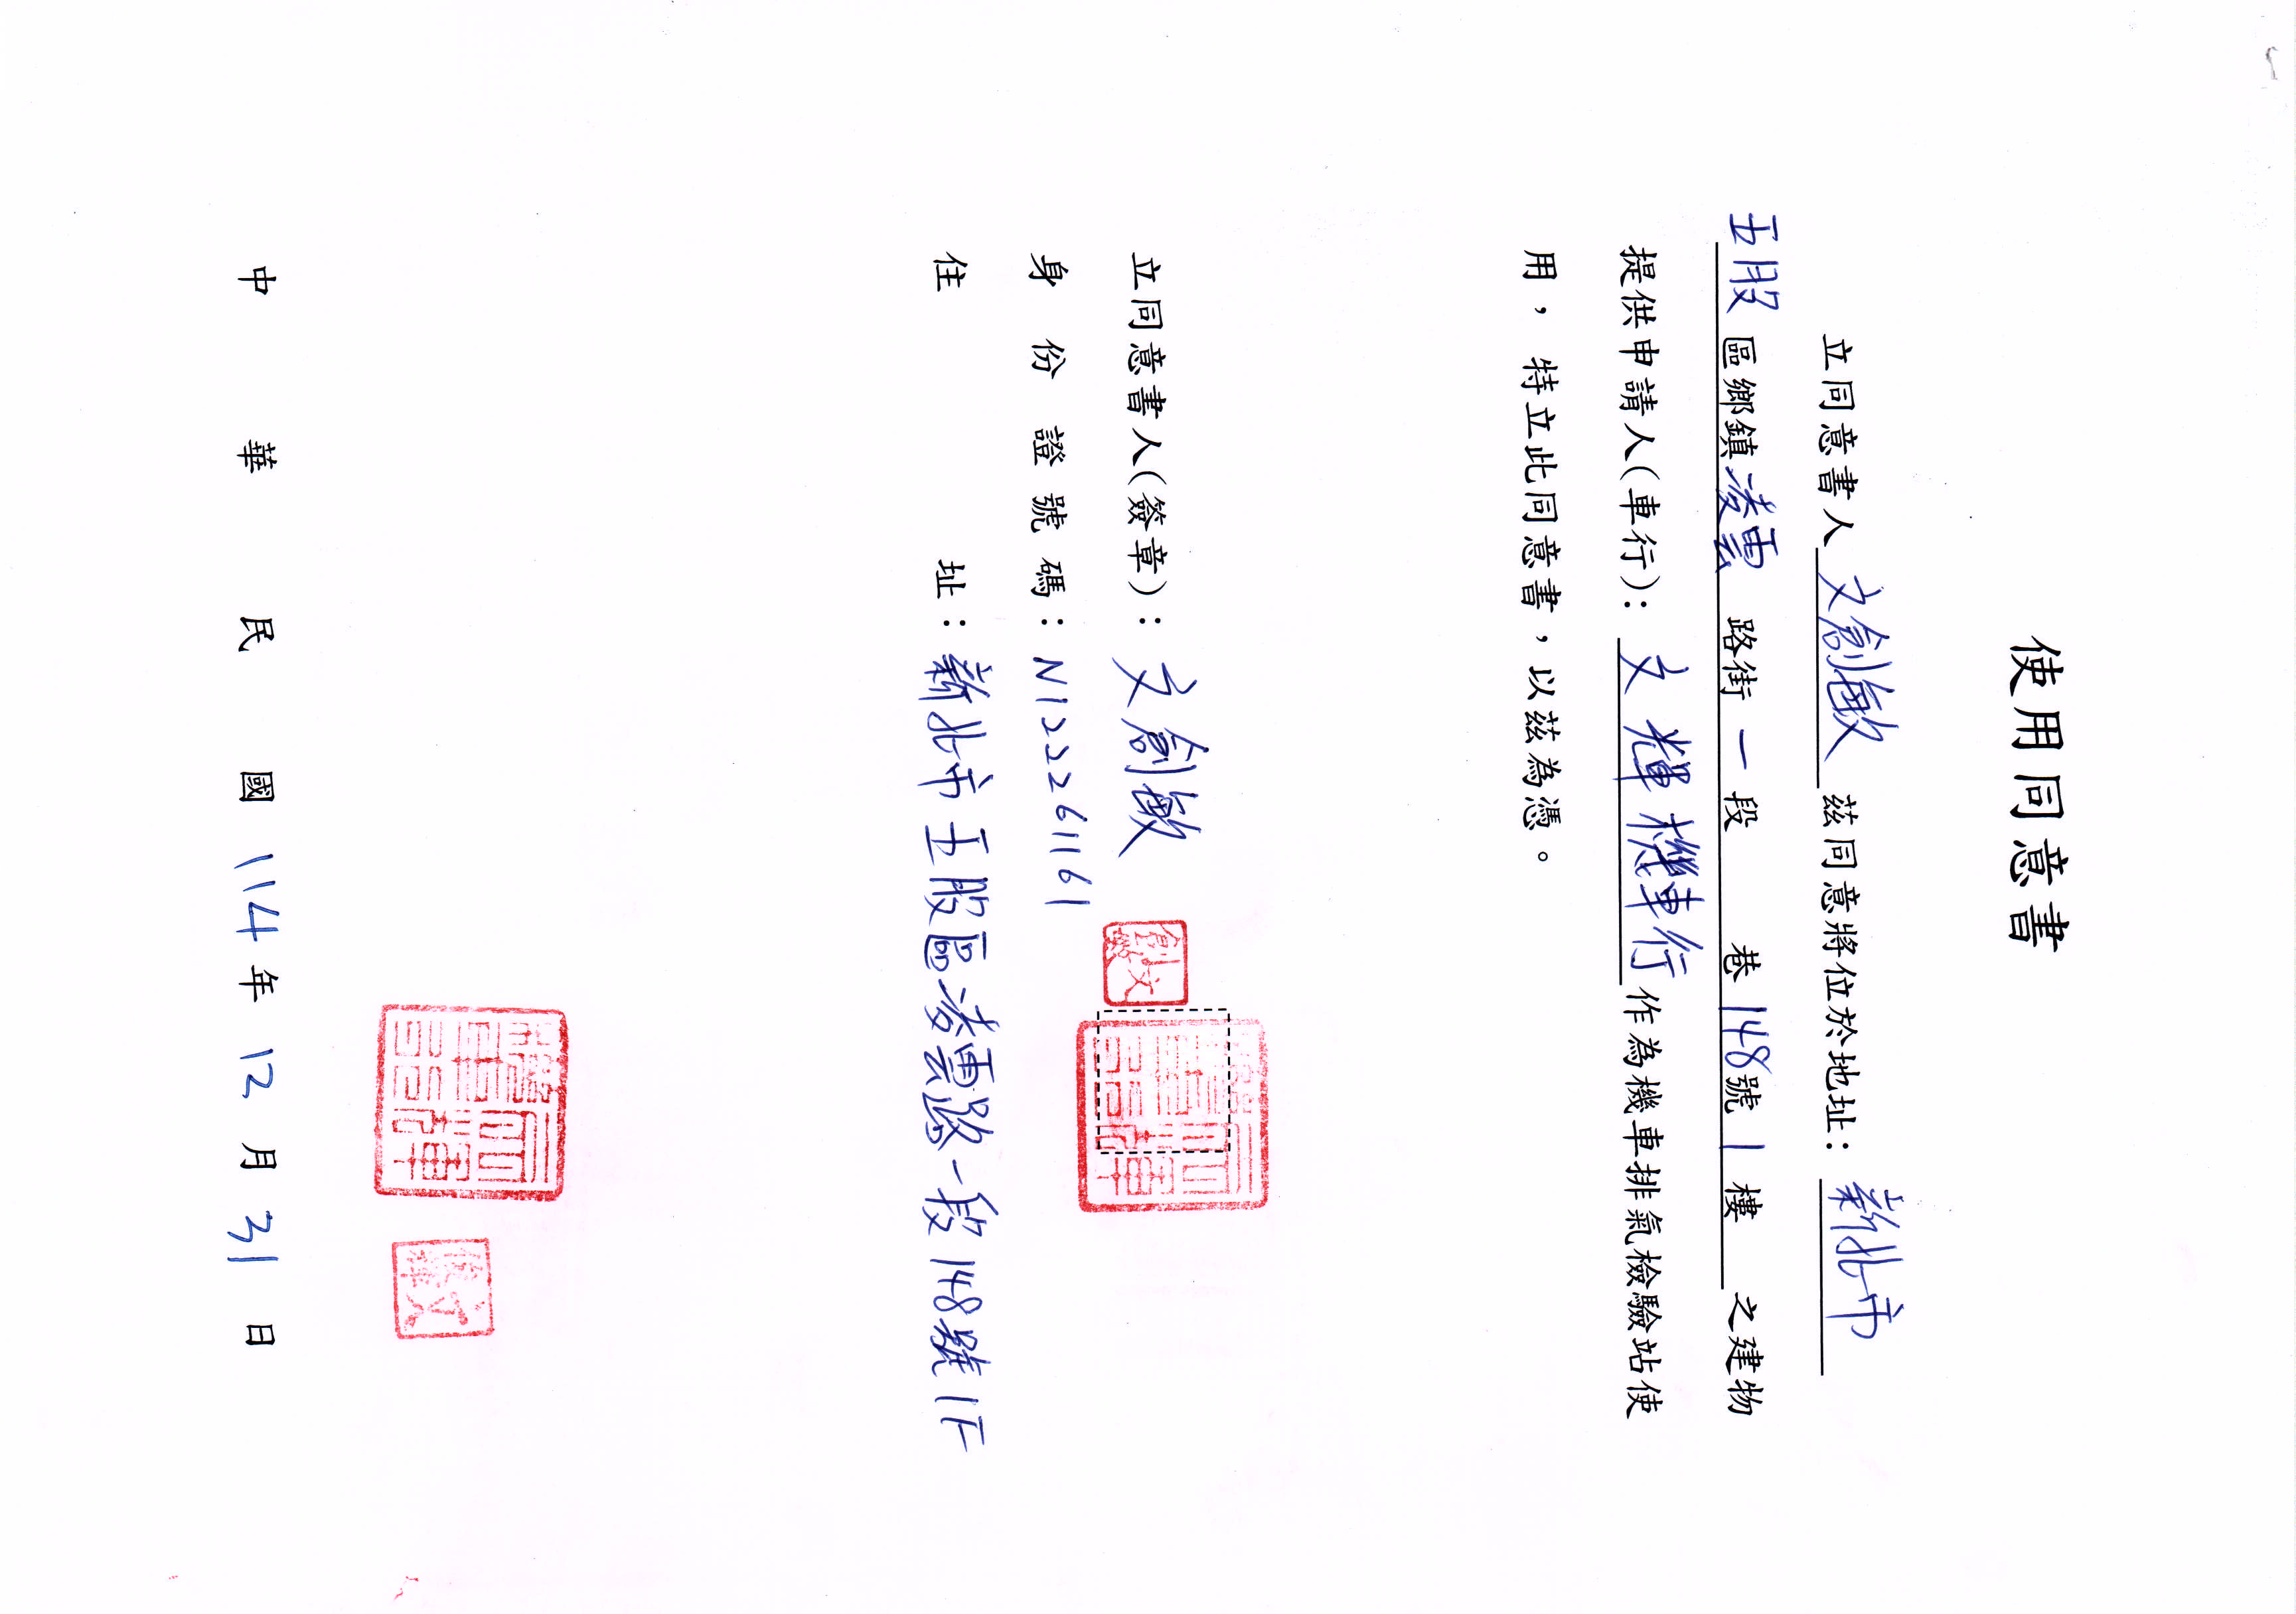 使用同意書
立同意書人 文創敏 茲同意將位於地址：新北市
五股 區鄉鎮 凌雲 路街 一 段 巷 148 號 1 樓 之建物
提供申請人(車行)：文輝機車行 作為機車排氣檢驗站使
用， 特立此同意書，以茲為憑。
立同意書人(簽章)：文創敏
身份證號碼：N122261161
住 址：新北市五股區凌雲路一段148號1F
中華民國 114 年 12 月 31 日